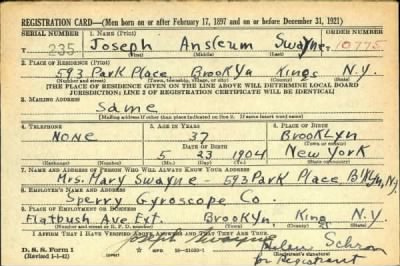 REGISTRATION CARD—(Men born on or after February 17, 1897 and on or before December 31, 1921)
SERIAL NUMBER 1. NAME (Print) ORDER NUMBER
235 Joseph Ansleum Swayne 10775
(First) (Middle) (Last)
2. PLACE OF RESIDENCE (Print)
593 Park Place Brooklyn Kings N.Y.
(Number and street) (Town, township, village, or city) (County) (State)
[THE PLACE OF RESIDENCE GIVEN ON THE LINE ABOVE WILL DETERMINE LOCAL BOARD
JURISDICTION; LINE 2 OF REGISTRATION CERTIFICATE WILL BE IDENTICAL]
3. MAILING ADDRESS
Same
(Mailing address if other than place indicated on line 2. If same insert word same)
4. TELEPHONE 5. AGE IN YEARS 6. PLACE OF BIRTH
NONE 37 Brooklyn
DATE OF BIRTH (Town or county)
5 23 1904 New York
(Exchange) (Number) (Mo.) (Day) (Yr.) (State or country)
7. NAME AND ADDRESS OF PERSON WHO WILL ALWAYS KNOW YOUR ADDRESS
Mrs. Mary Swayne - 593 Park Place Bklyn, N.Y.
8. EMPLOYER'S NAME AND ADDRESS
Sperry Gyroscope Co.
9. PLACE OF EMPLOYMENT OR BUSINESS
Flatbush Ave Ext. Brooklyn King N.Y.
(Number and street or R. F. D. number) (Town) (County) (State)
I AFFIRM THAT I HAVE VERIFIED ABOVE ANSWERS AND THAT THEY ARE TRUE.
Joseph Swayne
D. S. S. Form 1
(Revised 1-1-42) (over)
Helen
for Registrant